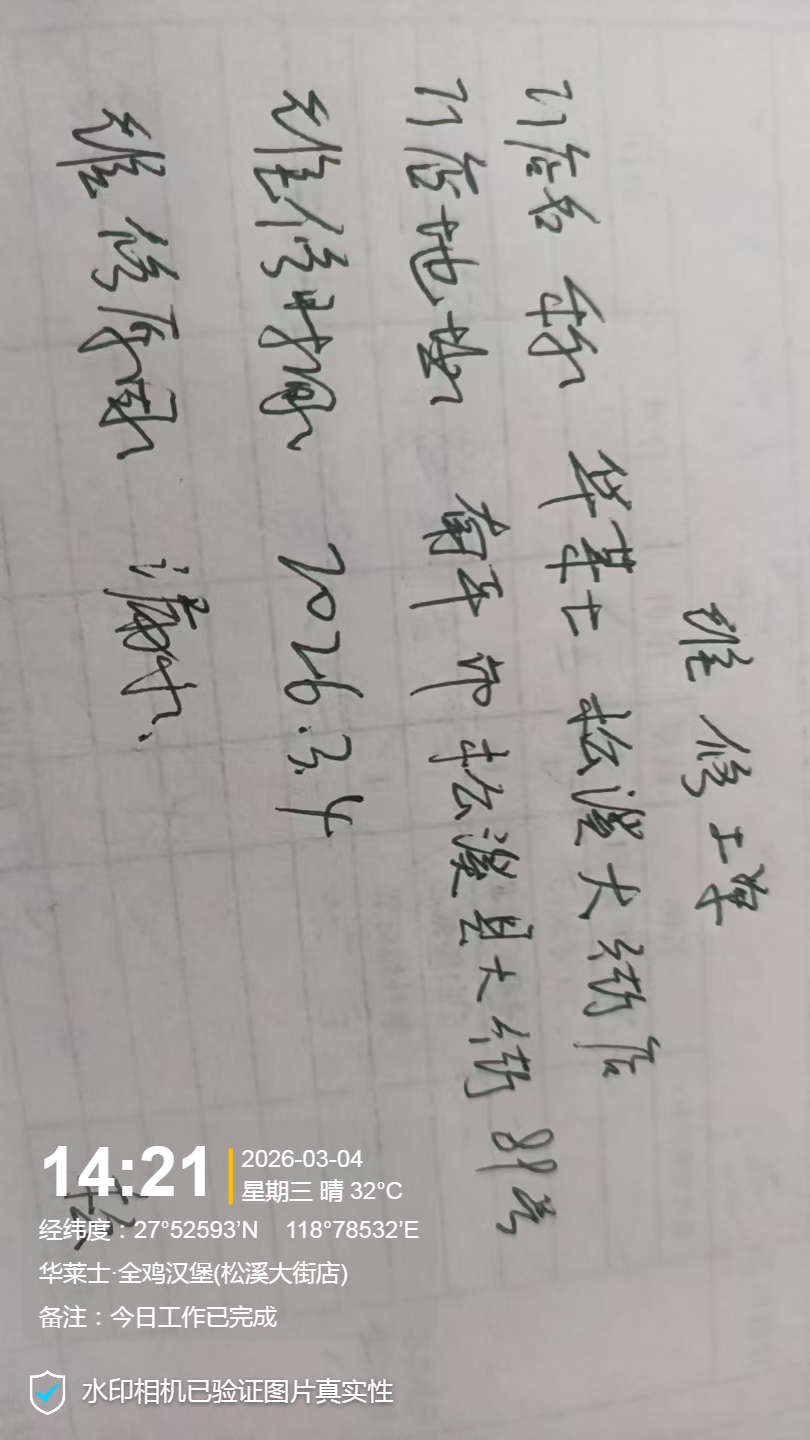 维修工单
门店名称 华莱士松溪大街店
门店地址 南平市松溪县大街89号
维修时间 2026.3.4
维修原因 漏水
14:21
2026-03-04
星期三 晴 32°C
经纬度：27°52593'N 118°78532'E
华莱士·全鸡汉堡(松溪大街店)
备注：今日工作已完成
水印相机已验证图片真实性